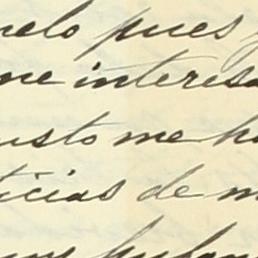 nelo pues y
me interesa
usto me ha
ticias de m